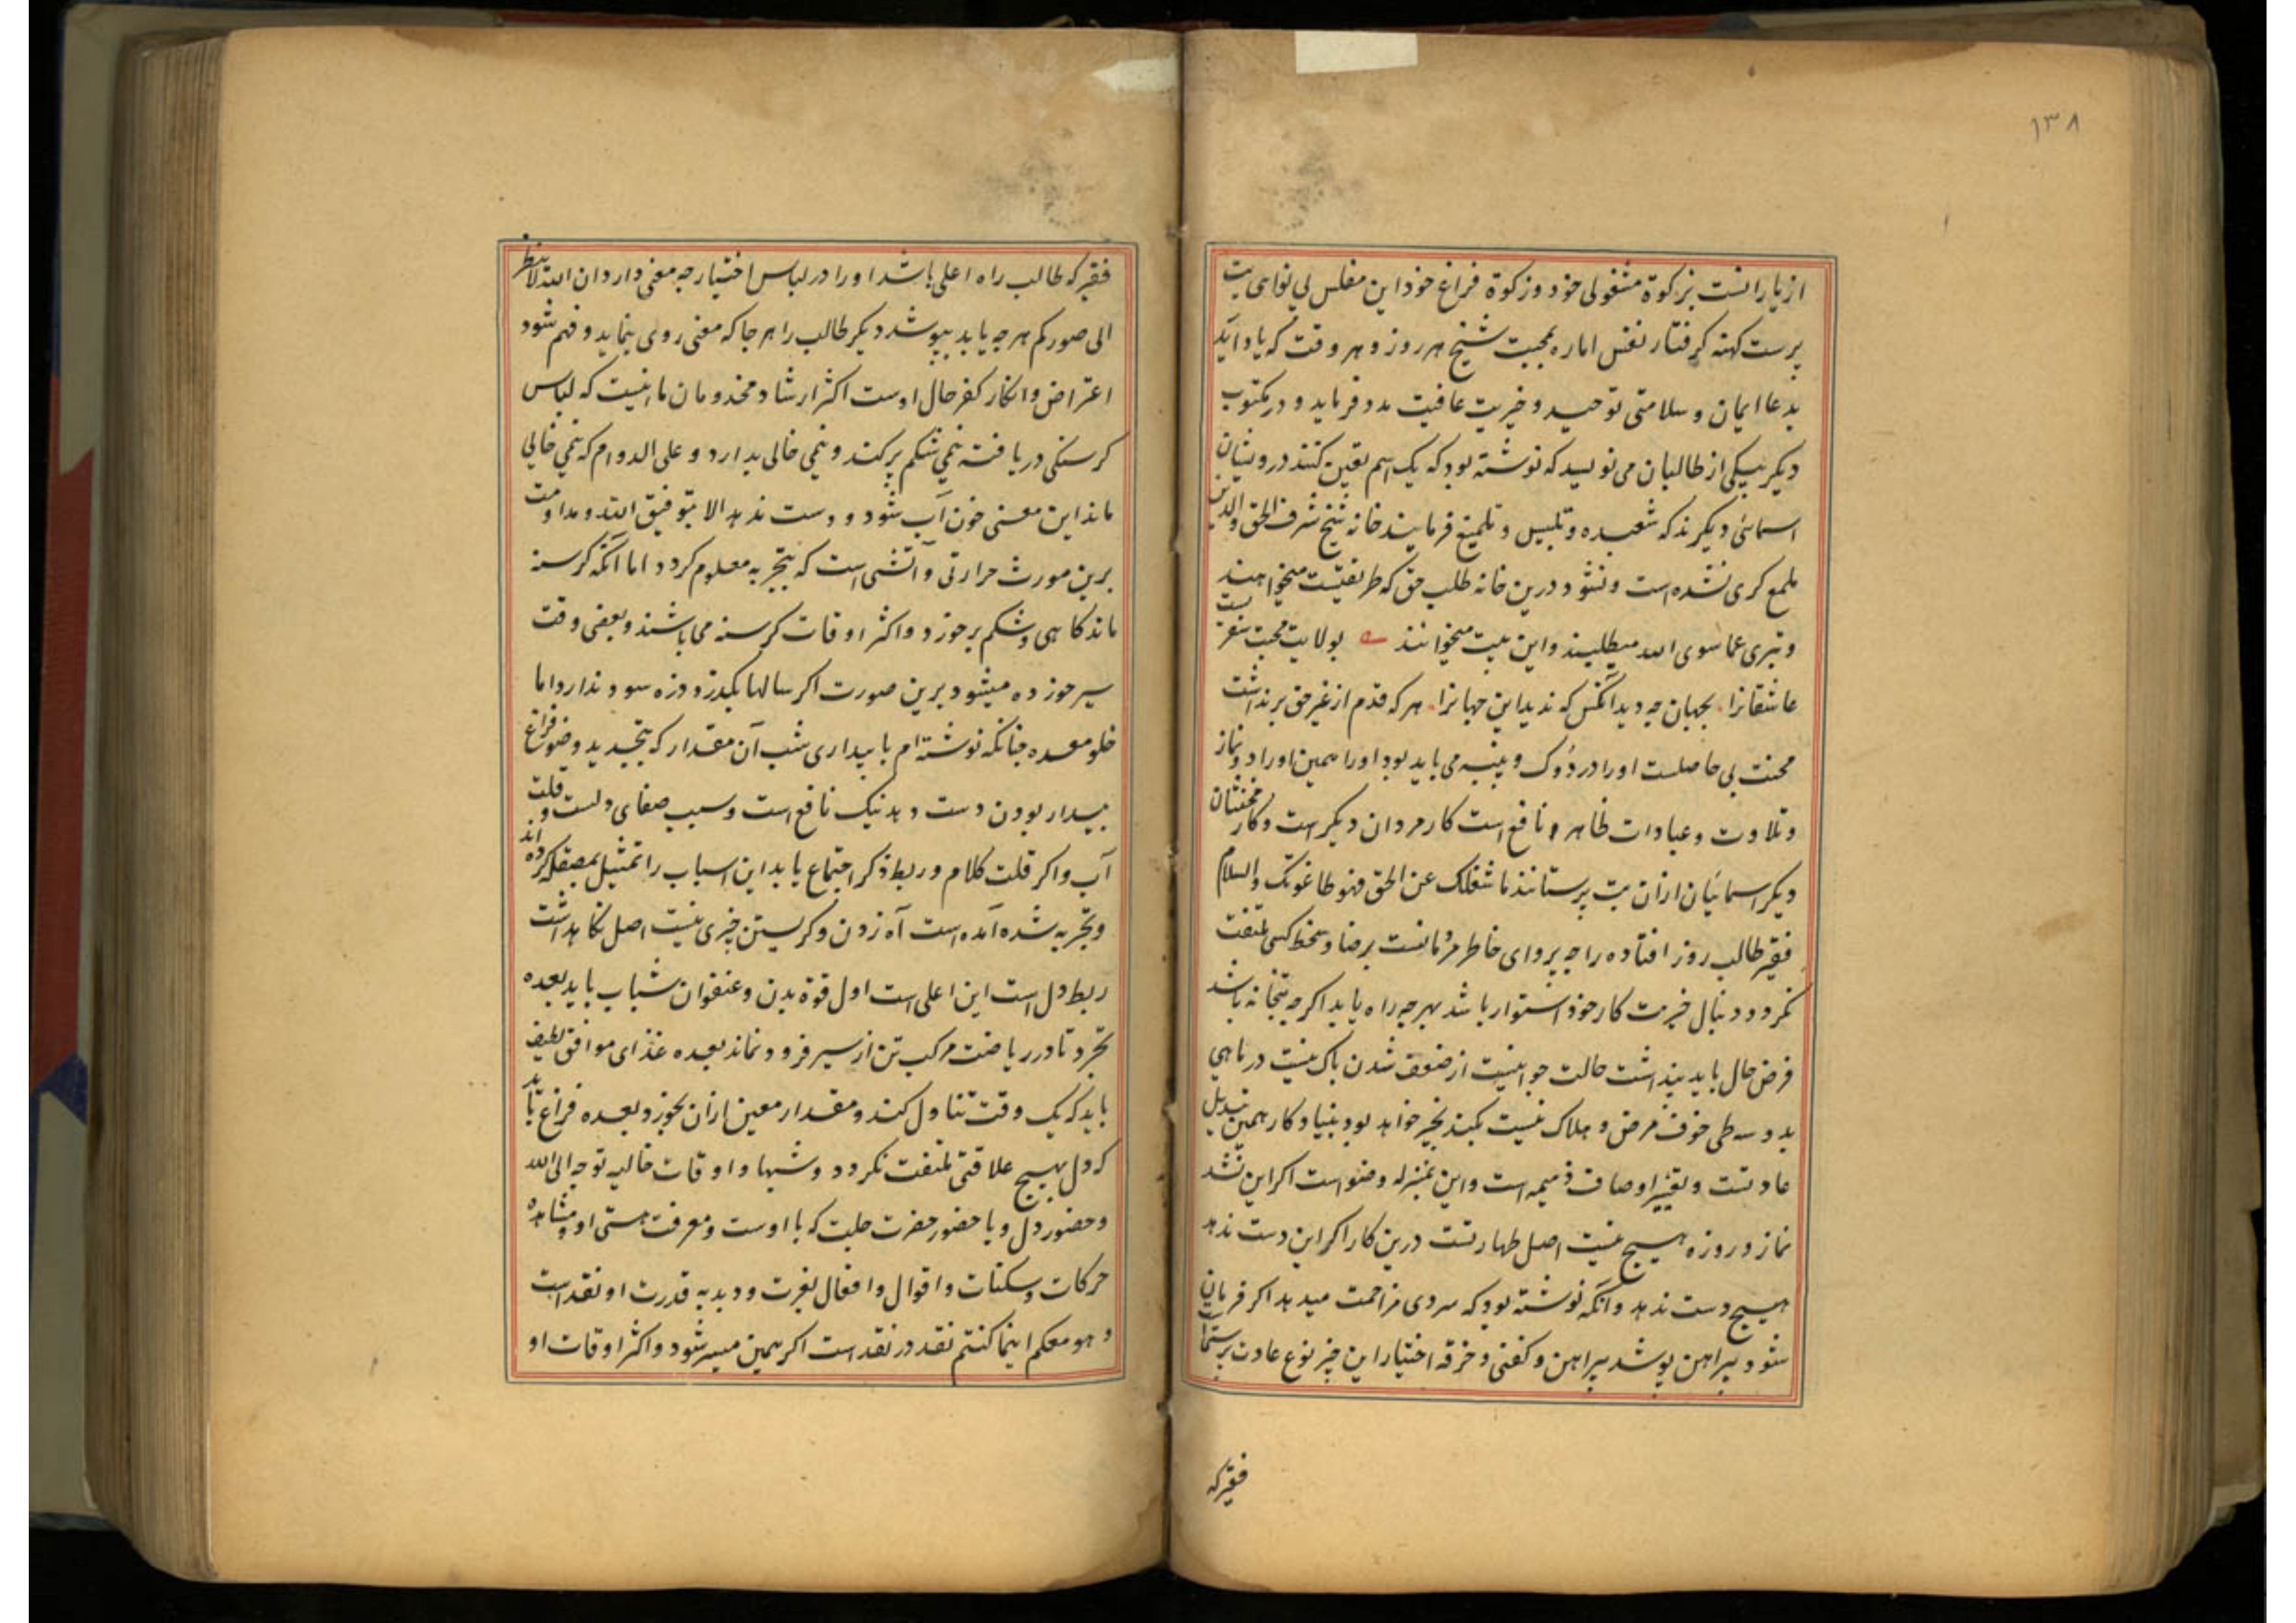 ۱۳۸
از یارانست بزکوة مشغولی خود وزکوة فراغ خود این مفلس بی نوا هی بت
پرست کهنه کرفتار نفس اماره بمحبت شیخ هر روز و هر وقت که یاد آید
بدعا ایمان و سلامتی توحید و خیریت عافیت مدد فرماید و در مکتوب
دیکر بیکی از طالبان می نویسد که نوشته بود که یک اسم تعین کنند درویشان
اسمائی دیکرند که شعبده و تلبیس و تلمیع فرمایند خانه شیخ شرف الحق والدین
ملمع کری نشده است و نشود درین خانه طلب حق که طریقتست میخواهند
و تبری عما سوی الله میطلبند و این بیت میخوانند بولایت محبت سفریست
عاشقانرا بجهان چه دید آنکس که ندید این جهانرا هر که قدم از غیر حق برنداشت
محنت بی حاصلست او را در دوک و پنبه می باید بود او را همین اوراد و نماز
و تلاوت و عبادات ظاهر نافع است کار مردان دیکر است و کار مخنثان
دیکر اسمائیان ازان بت پرستانند ما شغلک عن الحق فهو طاغوتک والسلام
فقیر طالب روز افتاده را چه پروای خاطر مردمانست برضا و سخط کسی ملتفت
نکردد و دنبال خیریت کار خود استوار باشد بهر چه راه یابد اکرچه بتخانه باشد
فرض حال باید پنداشت حالت جوانیست از ضعف شدن باک نیست در ماهی
بدو سه طی خوف مرض و هلاک نیست بکند بخیر خواهد بود بنیاد کار همین تبدیل
عادتست و تغییر اوصاف ذمیمه است و این بمنزله وضو است اکر این نشد
نماز و روزه هیچ نیست اصل طهارتست درین کار اکر این دست ندهد
هیچ دست ندهد و آنکه نوشته بود که سردی مزاحمت میدهد اکر فرمان
شود پیراهن پوشد پیراهن و کفنی و خرقه اختیار این چیز نوع عادت پرستیست
فقیر که
فقیر که طالب راه اعلی باشد او را در لباس اختیار چه معنی دارد ان الله لا ینظر
الی صورکم هر چه یابد بپوشد دیکر طالب را هر جا که معنی روی بنماید و فهم شود
اعتراض و انکار کفر حال اوست اکثر ارشاد مخدومان ما اینست که لباس
کرسنکی دریافته نیمی شکم پر کند و نیمی خالی بدارد و علی الدوام که نیمی خالی
ماند این معنی خون آب شود و دست ندهد الا بتوفیق الله و مداومت
برین مورث حرارتی و آتشی است که بتجربه معلوم کردد اما آنکه کرسنه
ماند کاهی و شکم پر خورد و اکثر اوقات کرسنه می باشند و بعضی وقت
سیر خورده میشود برین صورت اکر سالها بکذرد ذره سود ندارد اما
خلو معده چنانکه نوشته ام با بیداری شب آن مقدار که بتجدید وضو فراغ
بیدار بودن دست دهد نیک نافع است و سبب صفای دلست و قلت
آب و اکر قلت کلام و ربط ذکر اجتماع یابد این اسباب را تمثیل بمصقله کرده اند
و تجربه شده آمده است آه زدن و کریستن چیزی نیست اصل نکاهداشت
ربط دل است این اعلی است اول قوة بدن و عنفوان شباب باید بعده
تجرد تا در ریاضت مرکب تن از سیر فرو نماند بعده غذای موافق لطیف
باید که یک وقت تناول کند و مقدار معین ازان بخورد بعده فراغ باید
که دل بهیچ علاقتی ملتفت نکردد و شبها و اوقات خالیه توجه الی الله
و حضور دل و با حضور حضرت جلت که با اوست و معرفت هستی او و مشاهده
حرکات و سکنات و اقوال و افعال بغیرت و دبدبه قدرت او نقد است
و هو معکم اینما کنتم نقد در نقد است اکر همین میسر شود و اکثر اوقات او